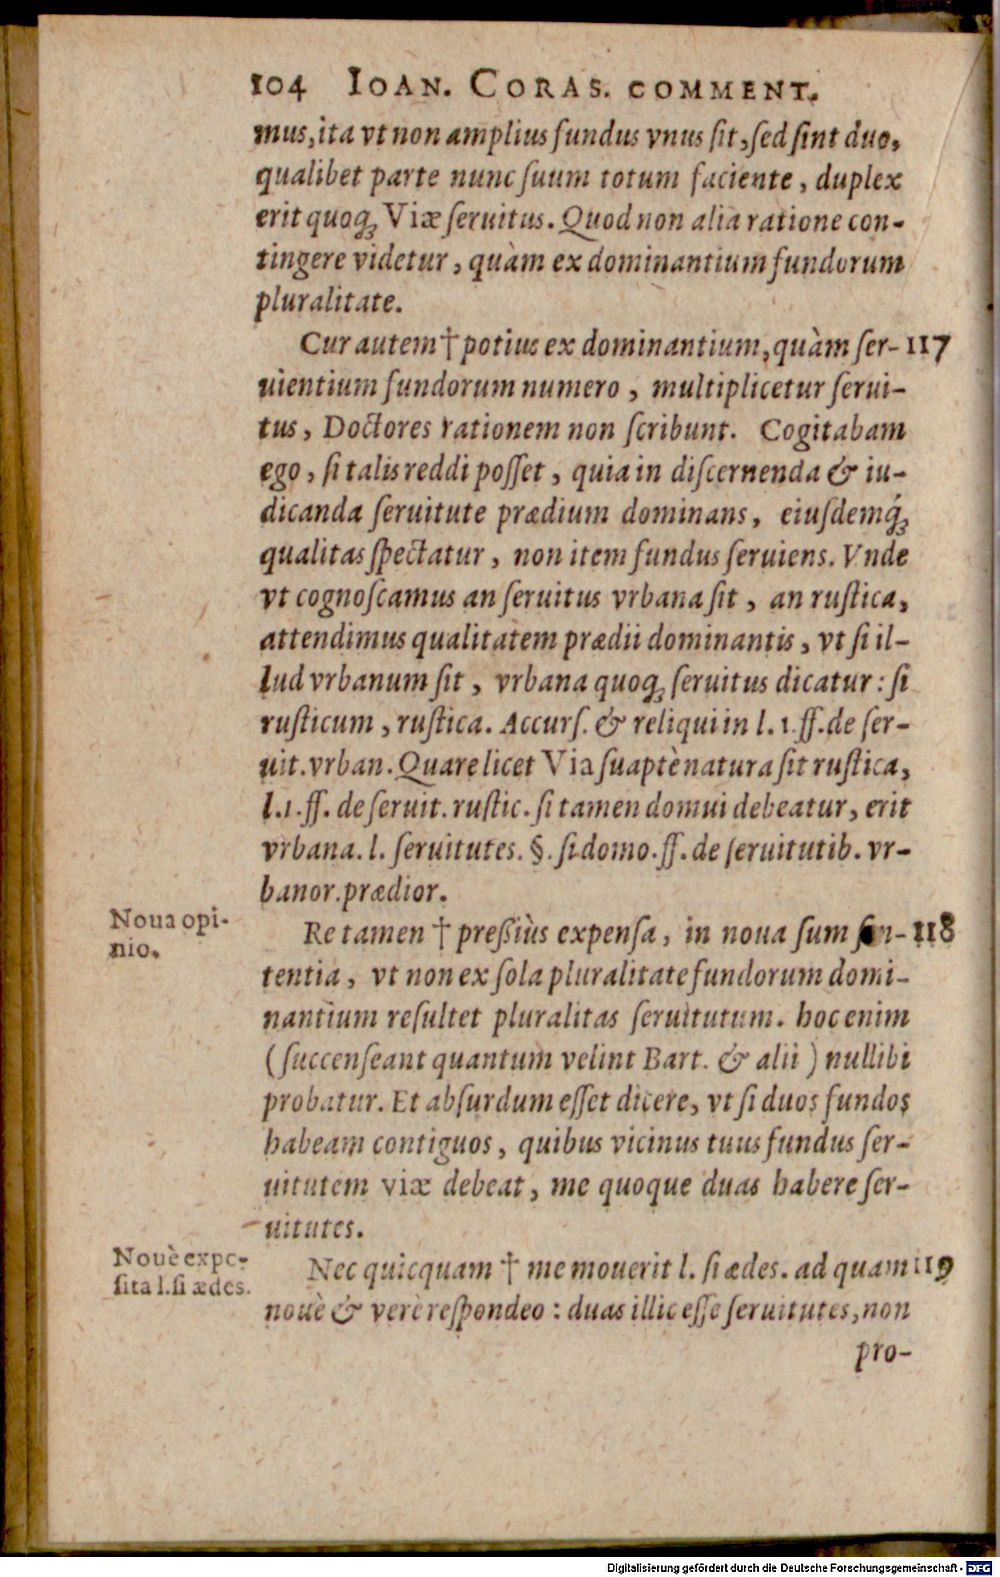 104 IOAN. CORAS. COMMENT.
mus, ita vt non amplius fundus vnus ſit, ſed ſint duo,
qualibet parte nunc ſuum totum faciente, duplex
erit quoq; Viæ ſeruitus. Quod non alia ratione con-
tingere videtur, quàm ex dominantium fundorum
pluralitate.
Cur autem † potius ex dominantium, quàm ſer- 117
uientium fundorum numero, multiplicetur ſerui-
tus, Doctores rationem non ſcribunt. Cogitabam
ego, ſi talis reddi poſſet, quia in diſcernenda & iu-
dicanda ſeruitute prædium dominans, eiuſdemq́;
qualitas ſpectatur, non item fundus ſeruiens. Vnde
vt cognoſcamus an ſeruitus vrbana ſit, an ruſtica,
attendimus qualitatem prædii dominantis, vt ſi il-
lud vrbanum ſit, vrbana quoq; ſeruitus dicatur: ſi
ruſticum, ruſtica. Accurſ. & reliqui in l. 1. ff. de ſer-
uit. vrban. Quare licet Via ſuaptè natura ſit ruſtica,
l. 1. ff. de ſeruit. ruſtic. ſi tamen domui debeatur, erit
vrbana. l. ſeruitutes. §. ſi domo. ff. de ſeruitutib. vr-
banor. prædior.
Noua opi-
nio.
Re tamen † preßiùs expenſa, in noua ſum ſen- 118
tentia, vt non ex ſola pluralitate fundorum domi-
nantium reſultet pluralitas ſeruitutum. hoc enim
(ſuccenſeant quantum velint Bart. & alii) nullibi
probatur. Et abſurdum eſſet dicere, vt ſi duos fundos
habeam contiguos, quibus vicinus tuus fundus ſer-
uitutem viæ debeat, me quoque duas habere ſer-
uitutes.
Nouè expo-
ſita l. ſi ædes.
Nec quicquam † me mouerit l. ſi ædes. ad quam 119
nouè & verè reſpondeo: duas illic eſſe ſeruitutes, non
pro-
Digitalisierung gefördert durch die Deutsche Forschungsgemeinschaft - DFG